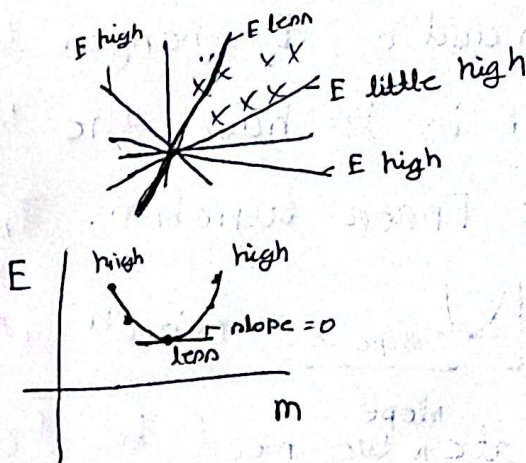 E high
E less
E little high
E high
E
high
high
slope = 0
less
m